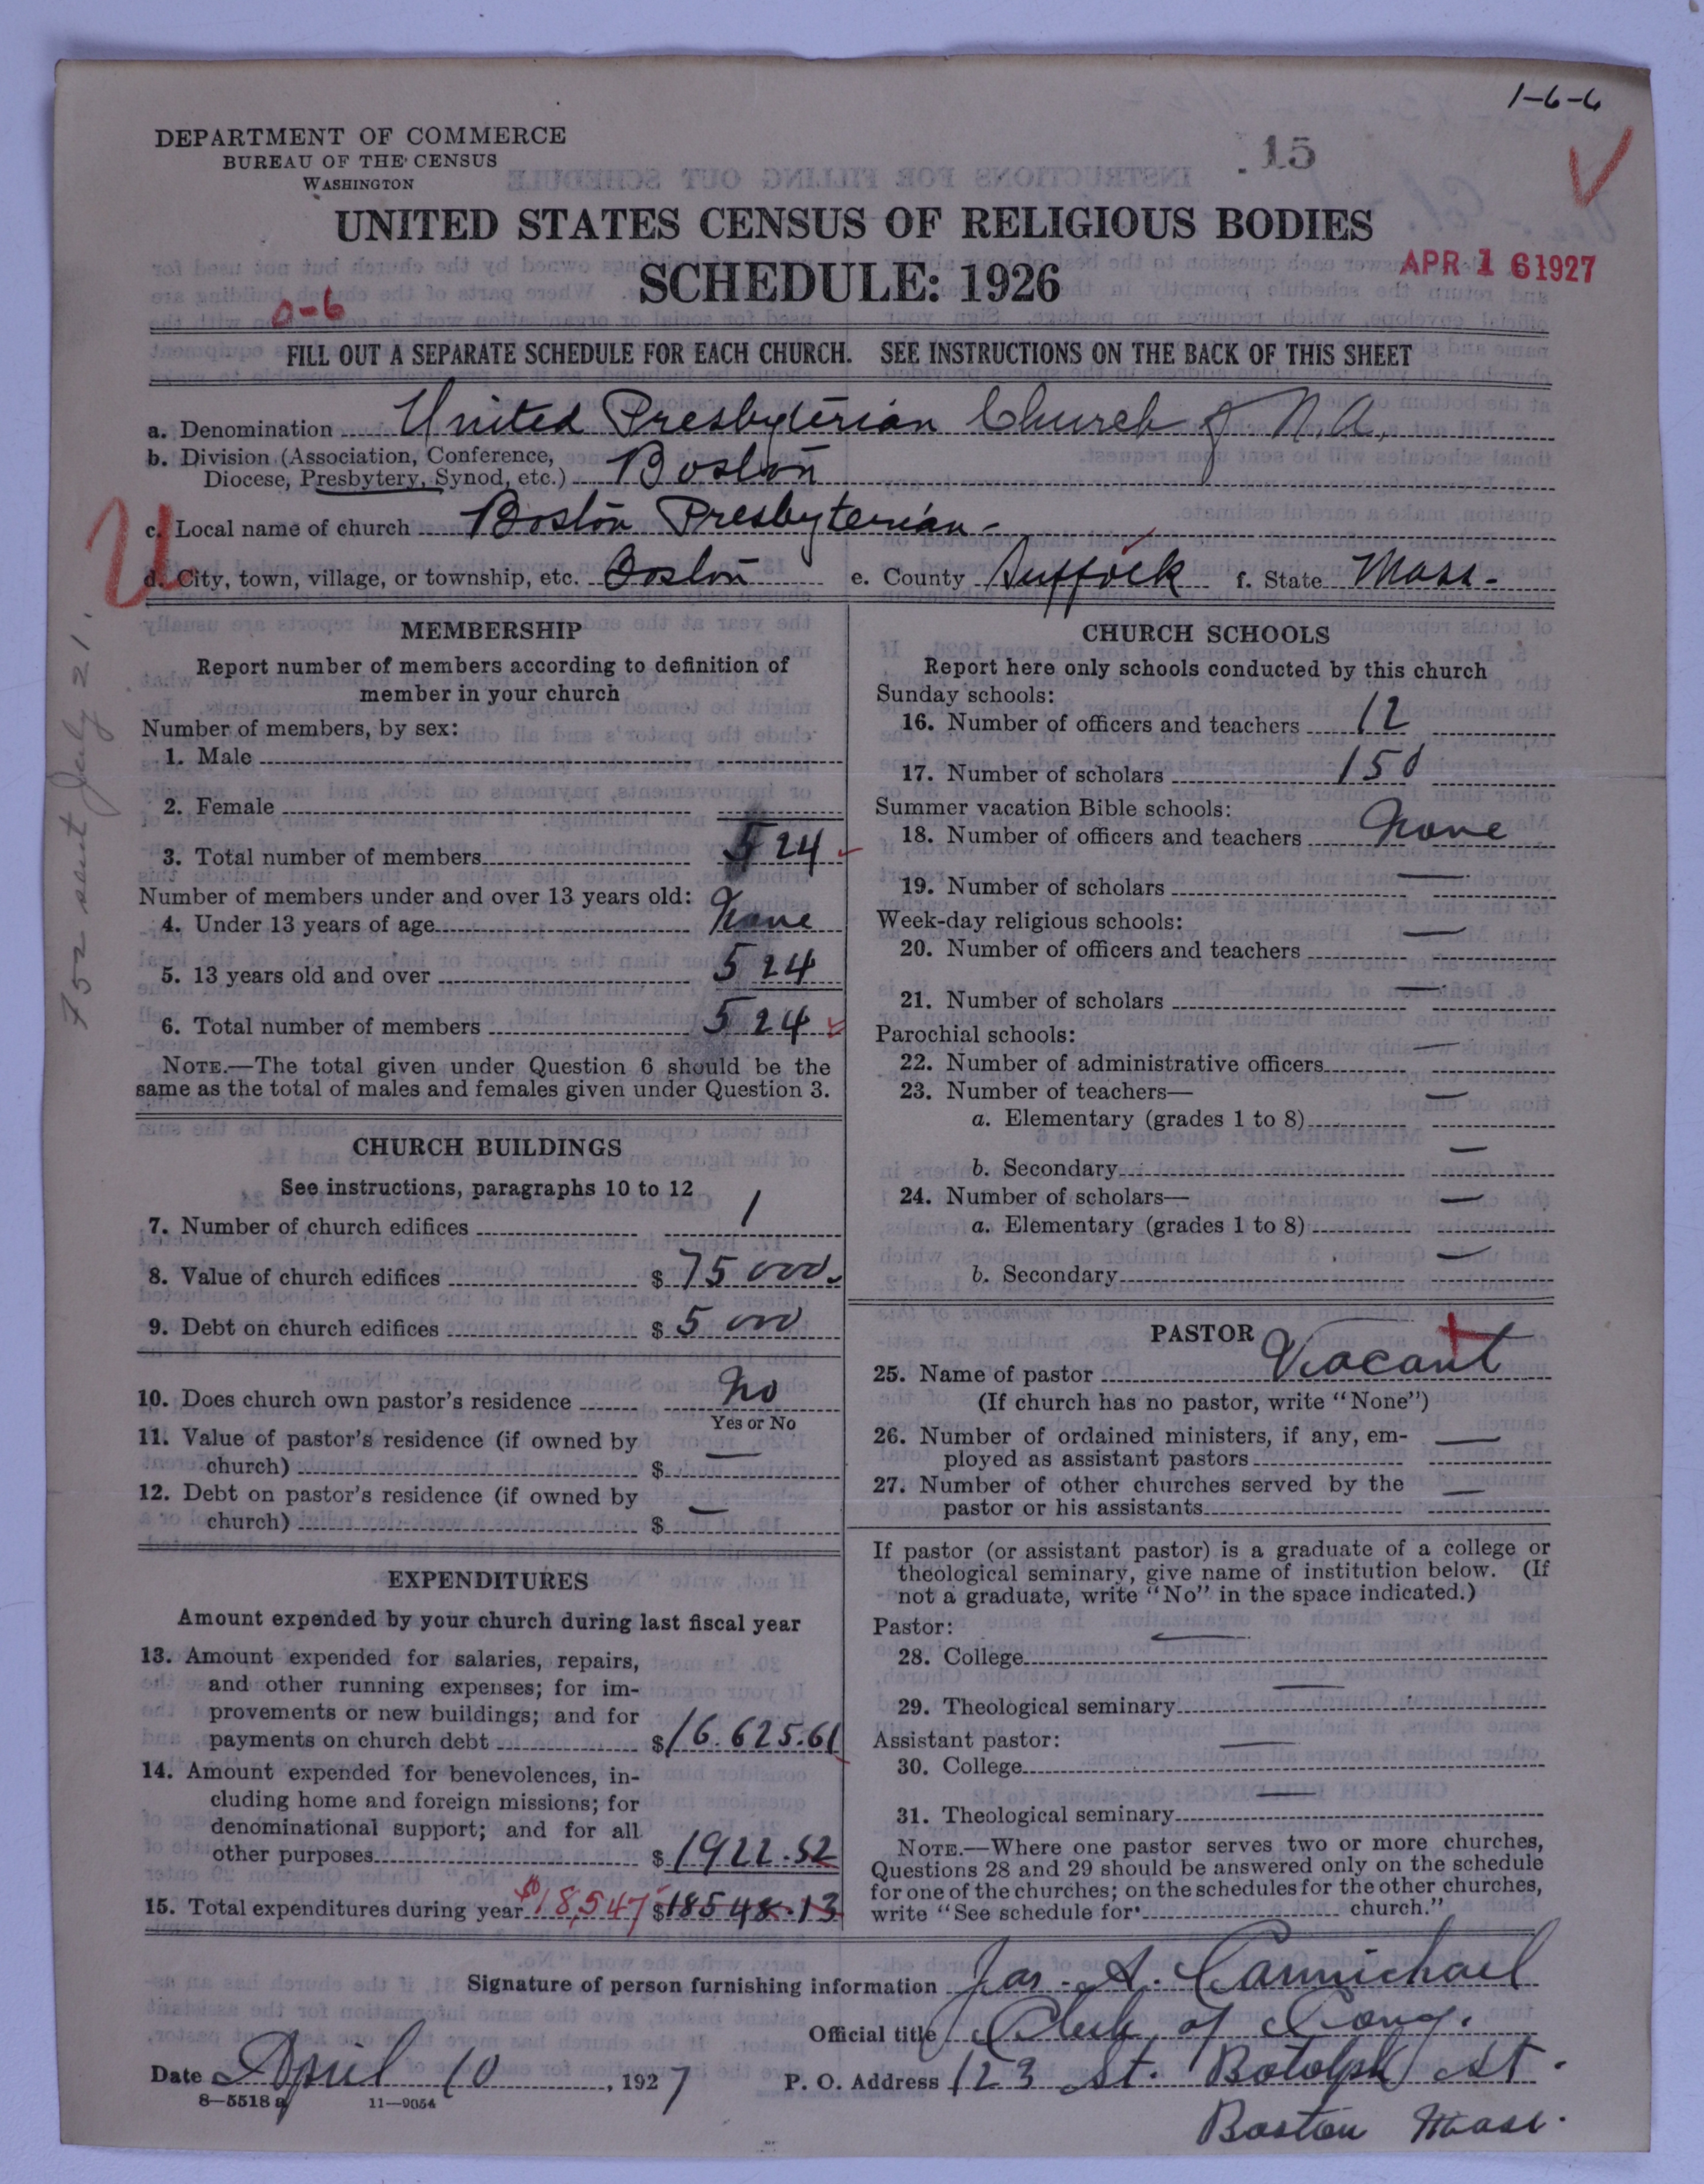 1-6-6
DEPARTMENT OF COMMERCE
BUREAU OF THE CENSUS
WASHINGTON
15
UNITED STATES CENSUS OF RELIGIOUS BODIES
SCHEDULE: 1926
APR 16 1927
0-6
FILL OUT A SEPARATE SCHEDULE FOR EACH CHURCH. SEE INSTRUCTIONS ON THE BACK OF THIS SHEET
a. Denomination United Presbyterian Church of N.A.
b. Division (Association, Conference,
Diocese, Presbytery, Synod, etc.) Boston
c. Local name of church Boston Presbyterian
d. City, town, village, or township, etc. Boston e. County Suffolk f. State Mass.
U
752 sent July 21.
MEMBERSHIP
Report number of members according to definition of
member in your church
Number of members, by sex:
1. Male
2. Female
3. Total number of members 524
Number of members under and over 13 years old:
4. Under 13 years of age None
5. 13 years old and over 524
6. Total number of members 524
NOTE.—The total given under Question 6 should be the
same as the total of males and females given under Question 3.
CHURCH BUILDINGS
See instructions, paragraphs 10 to 12
7. Number of church edifices 1
8. Value of church edifices $ 75000.
9. Debt on church edifices $ 5000
10. Does church own pastor's residence No
Yes or No
11. Value of pastor's residence (if owned by
church) $ —
12. Debt on pastor's residence (if owned by
church) $ —
EXPENDITURES
Amount expended by your church during last fiscal year
13. Amount expended for salaries, repairs,
and other running expenses; for im-
provements or new buildings; and for
payments on church debt $ 16.625.61
14. Amount expended for benevolences, in-
cluding home and foreign missions; for
denominational support; and for all
other purposes $ 1922.52
15. Total expenditures during year $18,547 $ 18548.13
CHURCH SCHOOLS
Report here only schools conducted by this church
Sunday schools:
16. Number of officers and teachers 12
17. Number of scholars 150
Summer vacation Bible schools:
18. Number of officers and teachers None
19. Number of scholars —
Week-day religious schools:
20. Number of officers and teachers —
21. Number of scholars —
Parochial schools:
22. Number of administrative officers —
23. Number of teachers—
a. Elementary (grades 1 to 8) —
b. Secondary —
24. Number of scholars—
a. Elementary (grades 1 to 8) —
b. Secondary —
PASTOR
25. Name of pastor Vacant
(If church has no pastor, write "None")
26. Number of ordained ministers, if any, em-
ployed as assistant pastors —
27. Number of other churches served by the
pastor or his assistants —
If pastor (or assistant pastor) is a graduate of a college or
theological seminary, give name of institution below. (If
not a graduate, write "No" in the space indicated.)
Pastor:
28. College —
29. Theological seminary —
Assistant pastor:
30. College —
31. Theological seminary —
NOTE.—Where one pastor serves two or more churches,
Questions 28 and 29 should be answered only on the schedule
for one of the churches; on the schedules for the other churches,
write "See schedule for church."
Signature of person furnishing information Jas. A. Carmichael
Official title Clerk of Cong.
Date April 10, 1927 P. O. Address 123 St. Botolph St.
Boston Mass.
8—5518 a 11—9054